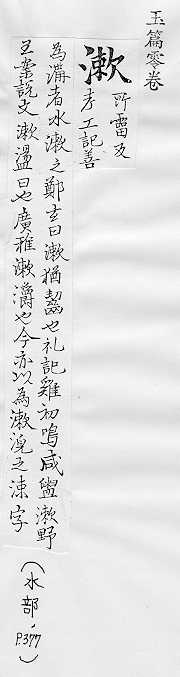 玉篇零卷
漱 所霤反
考工記善
為溝者水漱之鄭玄曰漱猶齧也礼記雞初鳴咸盥漱野
王案說文漱盪口也廣雅漱㵸也今亦以為漱浣之涑字
（水部，P.377）